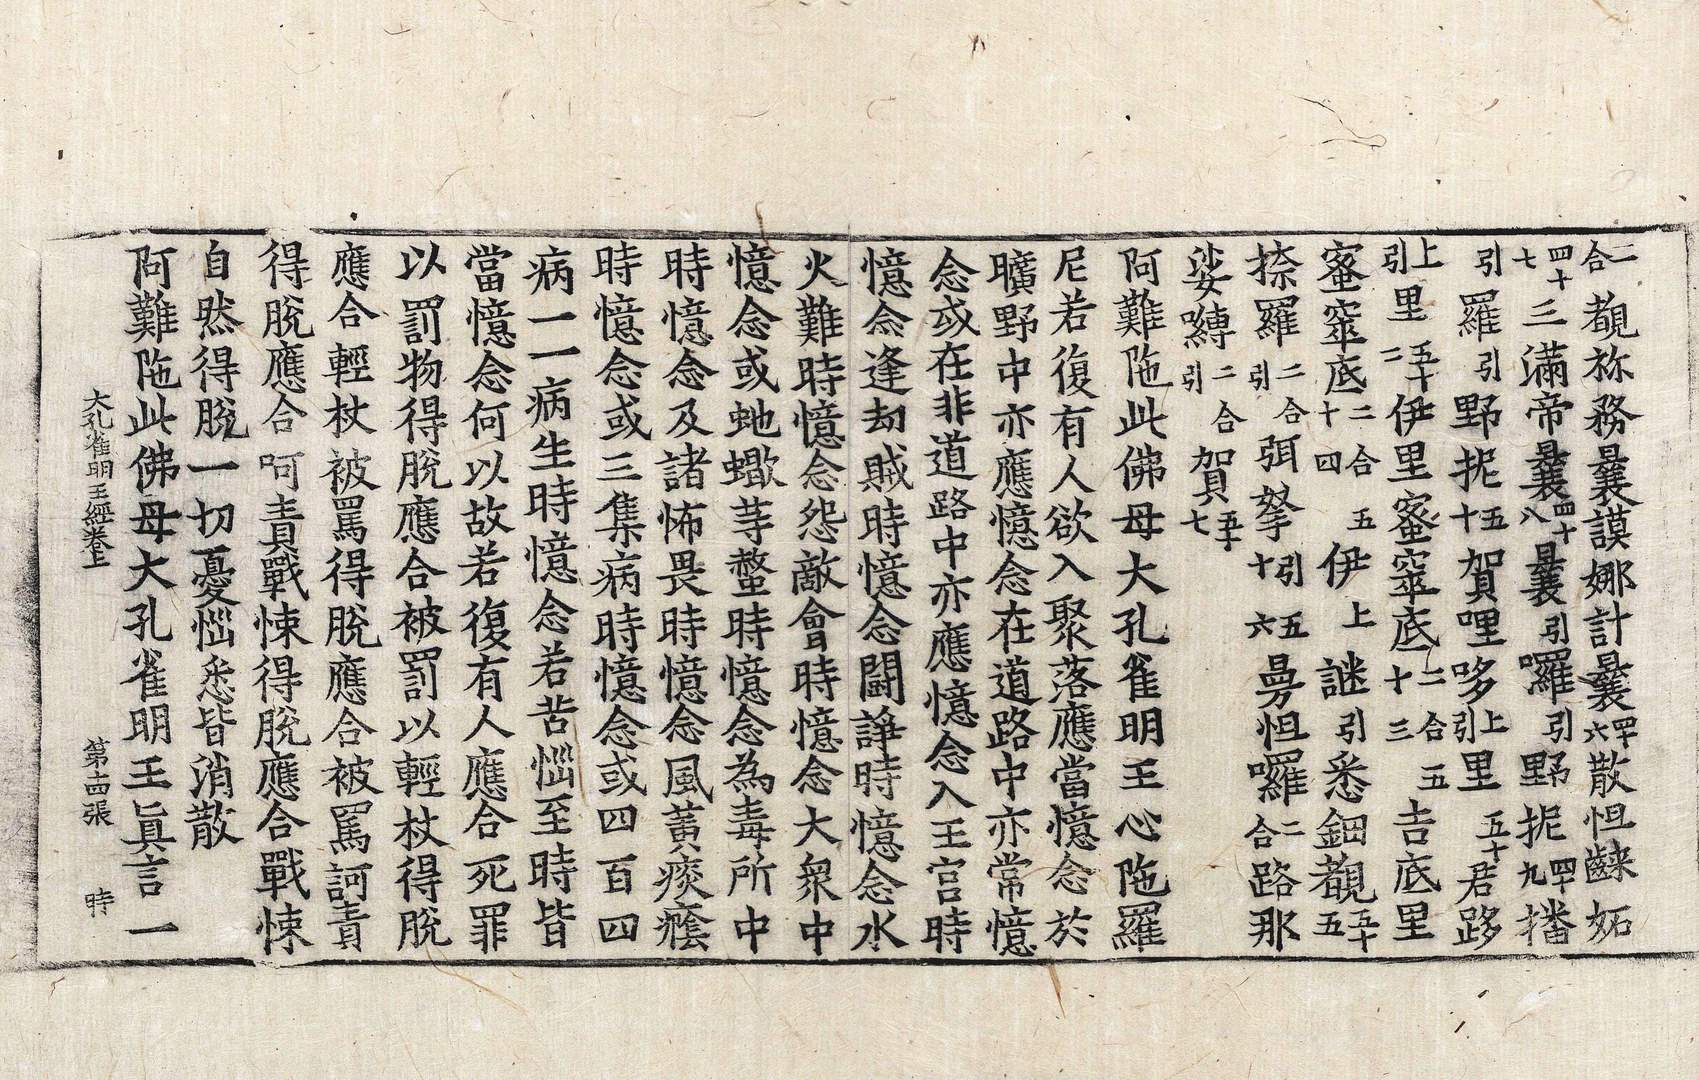 二合覩祢務曩謨娜計曩四十六散怛䫂妬
四十七三滿帝曩四十八曩引囉引野抳四十九播
引羅引野抳五十賀哩哆上引里五十一君路
上引里五十二伊里蜜窒底二合五十三吉底里
蜜窒底二合五十四伊上謎引悉鈿覩五十五
捺羅二合引弭拏引五十六曼怛囉二合路那
娑嚩二合引賀五十七
阿難陁此佛母大孔雀明王心陁羅
尼若復有人欲入聚落應當憶念於
曠野中亦應憶念在道路中亦常憶
念或在非道路中亦應憶念入王宫時
憶念逢劫賊時憶念鬪諍時憶念水
火難時憶念怨敵會時憶念大衆中
憶念或虵蠍等螫時憶念為毒所中
時憶念及諸怖畏時憶念風黃痰癊
時憶念或三集病時憶念或四百四
病一一病生時憶念若苦惱至時皆
當憶念何以故若復有人應合死罪
以罰物得脫應合被罰以輕杖得脫
應合輕杖被罵得脫應合被罵訶責
得脫應合呵責戰悚得脫應合戰悚
自然得脫一切憂惱悉皆消散
阿難陁此佛母大孔雀明王眞言一
大孔雀明王經卷上 第十四張 時